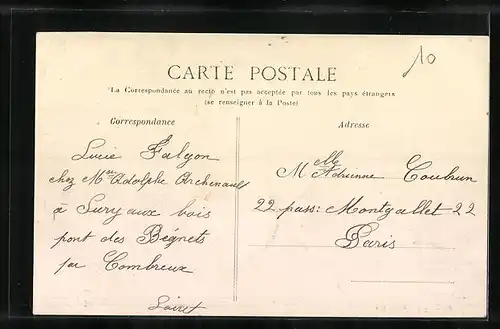 10
CARTE POSTALE
"La Correspondance au recto n'est pas acceptée par tous les pays étrangers
(se renseigner à la Poste)
Correspondance
Adresse
Lucie Falyon
chez Mme Adolphe Archenault
à Sury aux bois
pont des Bégnets
par Combreux
Loiret
Melle Adrienne Coubrun
22 pass: Montgallet 22
Paris